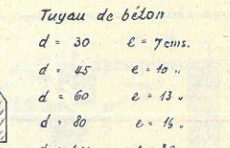 Tuyau de béton
d = 30 e = 7 cms.
d = 45 e = 10 "
d = 60 e = 13 "
d = 80 e = 16 "